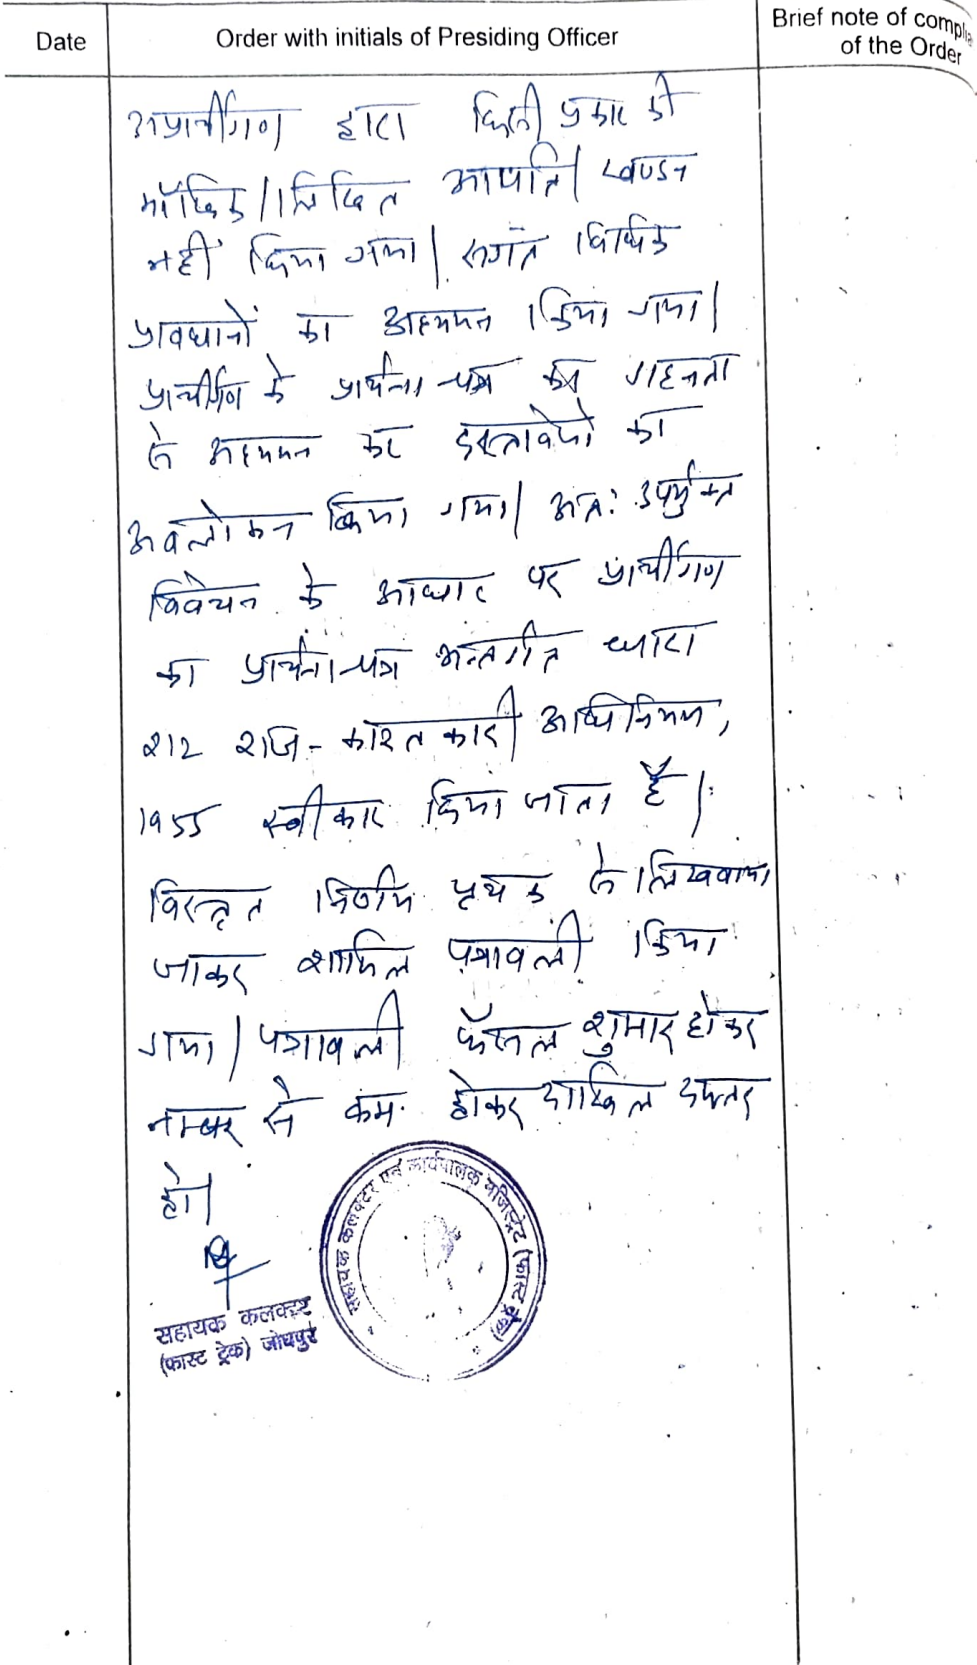 Date
Order with initials of Presiding Officer
Brief note of complia
of the Order
अप्रार्थीगण द्वारा किसी प्रकार की
मौखिक/लिखित आपत्ति/खण्डन
नहीं किया गया। संगत विधिक
प्रावधानों का अध्ययन किया गया।
प्रार्थीगण के प्रार्थना-पत्र का गहनता
से अध्ययन कर दस्तावेजों का
अवलोकन किया गया। अतः उपर्युक्त
विवेचन के आधार पर प्रार्थीगण
का प्रार्थना-पत्र अन्तर्गत धारा
212 राज- काश्तकारी अधिनियम,
1955 स्वीकार किया जाता है।
विस्तृत निर्णय पृथक से लिखवाया
जाकर शामिल पत्रावली किया
गया। पत्रावली फैसल शुमार होकर
नम्बर से कम होकर दाखिल दफ्तर
हो।
सहायक कलक्टर
(फास्ट ट्रेक) जोधपुर
सहायक कलक्टर एवं कार्यपालक मजिस्ट्रेट (फास्ट ट्रेक)